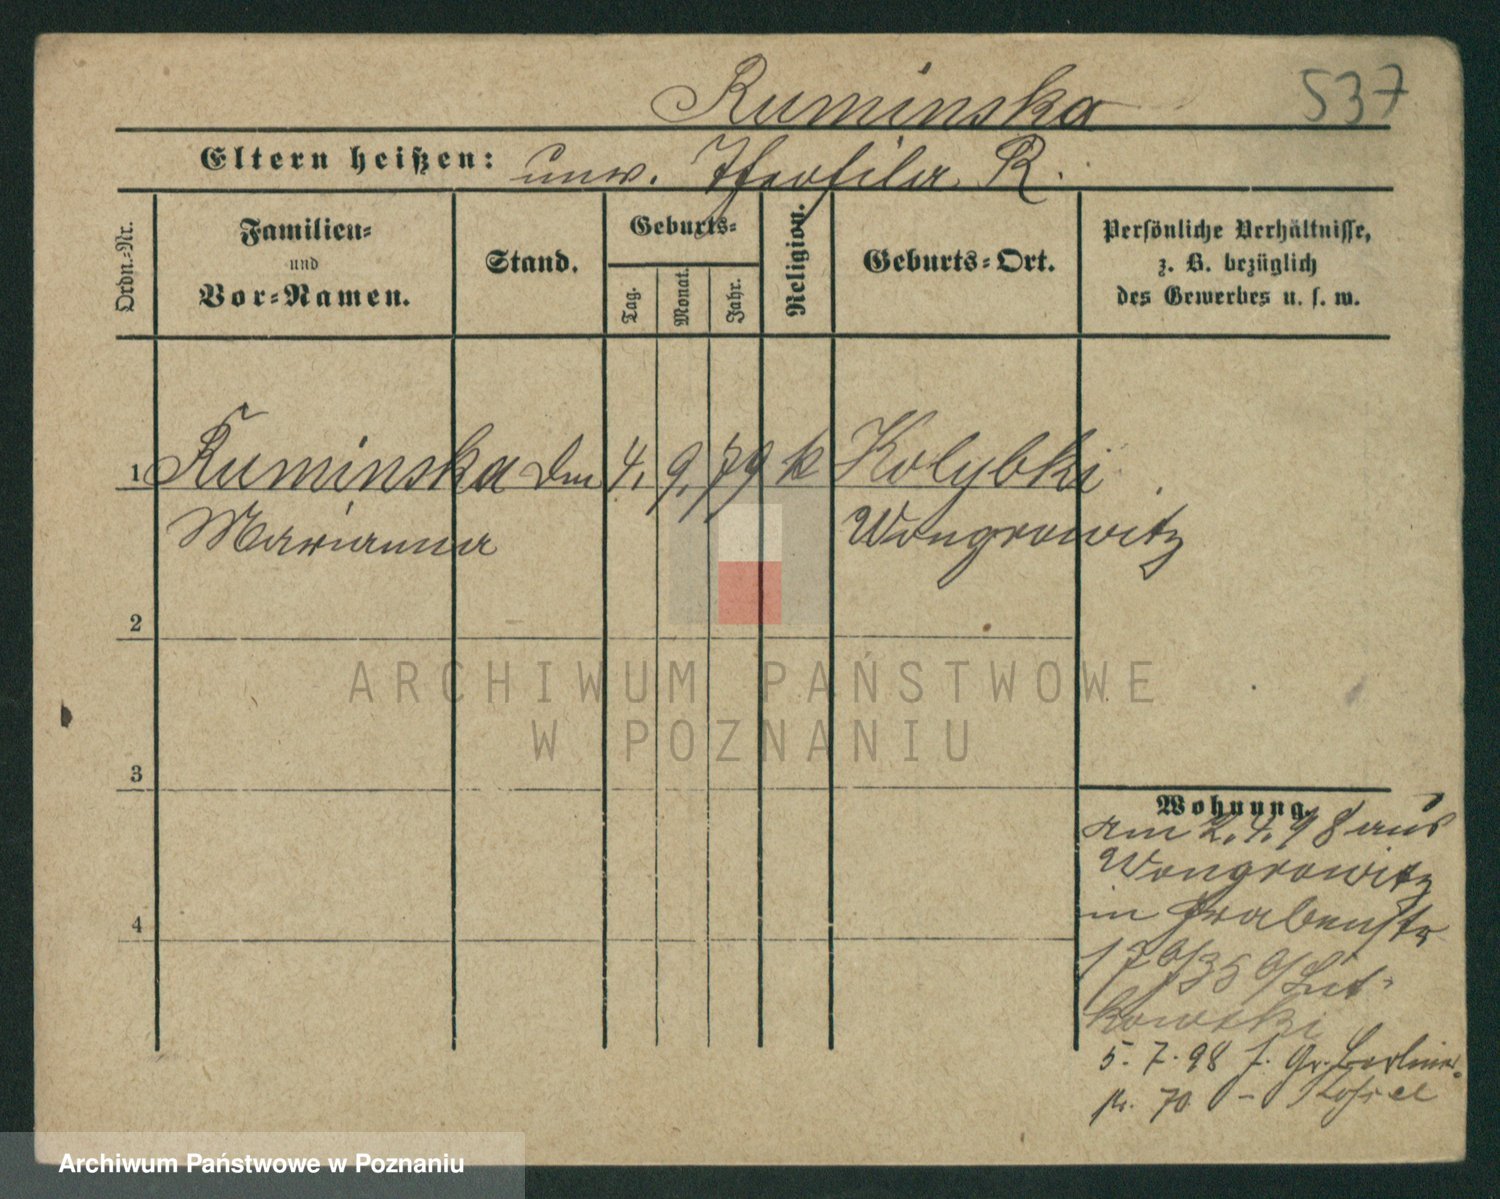 Ruminska
537
Eltern heißen: unv. Theofila R.
Ordn.-Nr.
Familien-
und
Vor-Namen.
Stand.
Geburts-
Tag.
Monat.
Jahr.
Religion.
Geburts-Ort.
Persönliche Verhältnisse,
z. B. bezüglich
des Gewerbes u. s. w.
1 Ruminska 4. 9. 79 k Kolybki
Marianna Wongrowitz
2
3
4
Wohnung.
am 2.4.98 aus
Wongrowitz
in Grabenstr
kowski
5. 7. 98 Gr. Berliner-
70 -
ARCHIWUM PAŃSTWOWE
W POZNANIU
Archiwum Państwowe w Poznaniu